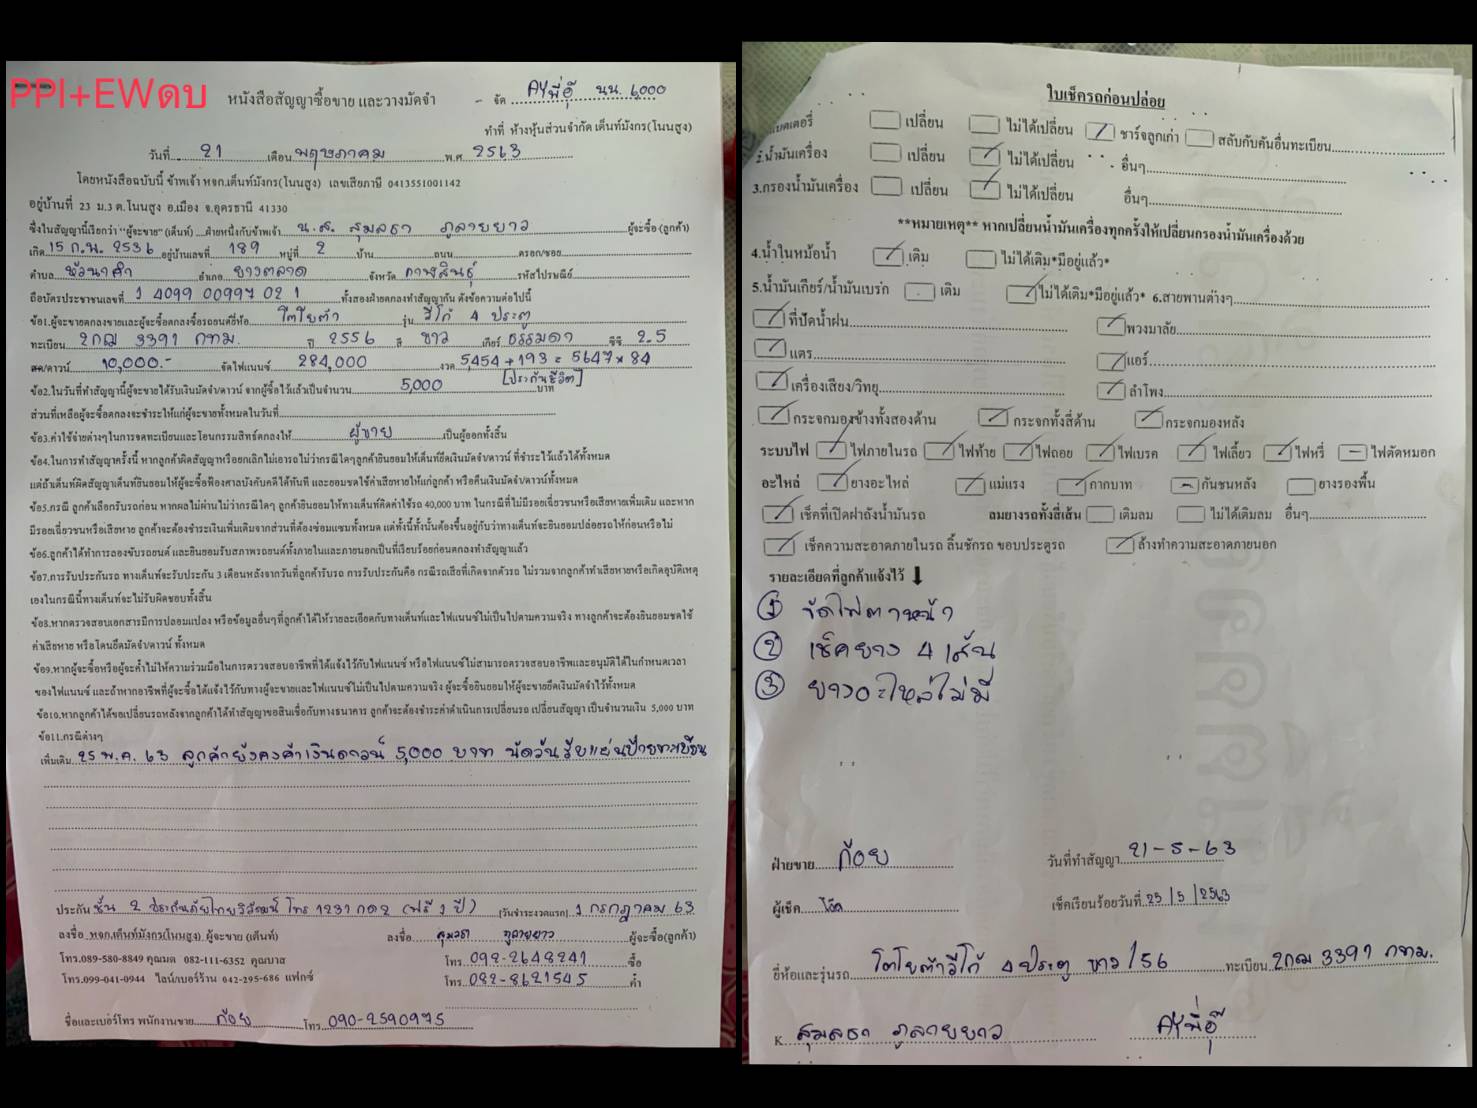 PPI+EWดบ
หนังสือสัญญาซื้อขาย และวางมัดจำ - จัด AYพี่อุ๊ นน. 6,000
ทำที่ ห้างหุ้นส่วนจำกัด เต็นท์มังกร(โนนสูง)
วันที่ 21 เดือน พฤษภาคม พ.ศ 2563
โดยหนังสือฉบับนี้ ข้าพเจ้า หจก.เต็นท์มังกร(โนนสูง) เลขเสียภาษี 0413551001142
อยู่บ้านที่ 23 ม.3 ต.โนนสูง อ.เมือง จ.อุดรธานี 41330
ซึ่งในสัญญานี้เรียกว่า "ผู้จะขาย" (เต็นท์) ฝ่ายหนึ่งกับข้าพเจ้า น.ส. สุมลธา ภูลายยาว ผู้จะซื้อ (ลูกค้า)
เกิด 15 ก.น. 2536 อยู่บ้านเลขที่ 189 หมู่ที่ 2 บ้าน ถนน ตรอก/ซอย
ตำบล หัวนาคำ อำเภอ ยางตลาด จังหวัด กาฬสินธุ์ รหัสไปรษณีย์
ถือบัตรประชาชนเลขที่ 1 4099 00997 02 1 ทั้งสองฝ่ายตกลงทำสัญญากัน ดังข้อความต่อไปนี้
ข้อ1.ผู้จะขายตกลงขายและผู้จะซื้อตกลงซื้อรถยนต์ยี่ห้อ โตโยต้า รุ่น วีโก้ 4 ประตู
ทะเบียน 2กฌ 3391 กทม. ปี 2556 สี ขาว เกียร์ ธรรมดา ซีซี 2.5
สด/ดาวน์ 10,000.- จัดไฟแนนซ์ 284,000 งวด 5,454+193 = 5647×84
ข้อ2.ในวันที่ทำสัญญานี้ผู้จะขายได้รับเงินมัดจำ/ดาวน์ จากผู้ซื้อไว้แล้วเป็นจำนวน 5,000 [ประกันชีวิต] บาท
ส่วนที่เหลือผู้จะซื้อตกลงจะชำระให้แก่ผู้จะขายทั้งหมดในวันที่
ข้อ3.ค่าใช้จ่ายต่างๆในการจดทะเบียนและโอนกรรมสิทธ์ตกลงให้ ผู้ขาย เป็นผู้ออกทั้งสิ้น
ข้อ4.ในการทำสัญญาครั้งนี้ หากลูกค้าผิดสัญญาหรือยกเลิกไม่เอารถ ไม่ว่ากรณีใดๆลูกค้ายินยอมให้เต็นท์ยึดเงินมัดจำ/ดาวน์ ที่ชำระไว้แล้วได้ทั้งหมด
แต่ถ้าเต็นท์ผิดสัญญาเต็นท์ยินยอมให้ผู้จะซื้อฟ้องศาลบังคับคดีได้ทันที และยอมชดใช้ค่าเสียหายให้แก่ลูกค้า หรือคืนเงินมัดจำ/ดาวน์ทั้งหมด
ข้อ5.กรณี ลูกค้าเลือกรับรถก่อน หากผลไม่ผ่านไม่ว่ากรณีใดๆ ลูกค้ายินยอมให้ทางเต็นท์คิดค่าใช้รถ 40,000 บาท ในกรณีที่ไม่มีรอยเฉี่ยวชนหรือเสียหายเพิ่มเติม และหาก
มีรอยเฉี่ยวชนหรือเสียหาย ลูกค้าจะต้องชำระเงินเพิ่มเติมจากส่วนที่ต้องซ่อมแซมทั้งหมด แต่ทั้งนี้ทั้งนั้นต้องขึ้นอยู่กับว่าทางเต็นท์จะยินยอมปล่อยรถให้ก่อนหรือไม่
ข้อ6.ลูกค้าได้ทำการลองขับรถยนต์ และยินยอมรับสภาพรถยนต์ทั้งภายในและภายนอกเป็นที่เรียบร้อยก่อนตกลงทำสัญญาแล้ว
ข้อ7.การรับประกันรถ ทางเต็นท์จะรับประกัน 3 เดือนหลังจากวันที่ลูกค้ารับรถ การรับประกันคือ กรณีรถเสียที่เกิดจากตัวรถ ไม่รวมจากลูกค้าทำเสียหายหรือเกิดอุบัติเหตุ
เองในกรณีนี้ทางเต็นท์จะไม่รับผิดชอบทั้งสิ้น
ข้อ8.หากตรวจสอบเอกสารมีการปลอมแปลง หรือข้อมูลอื่นๆที่ลูกค้าได้ให้รายละเอียดกับทางเต็นท์และไฟแนนซ์ไม่เป็นไปตามความจริง ทางลูกค้าจะต้องยินยอมชดใช้
ค่าเสียหาย หรือโดนยึดมัดจำ/ดาวน์ ทั้งหมด
ข้อ9.หากผู้จะซื้อหรือผู้จะค้ำไม่ให้ความร่วมมือในการตรวจสอบอาชีพที่ได้แจ้งไว้กับไฟแนนซ์ หรือไฟแนนซ์ไม่สามารถตรวจสอบอาชีพและอนุมัติได้ในกำหนดเวลา
ของไฟแนนซ์ และถ้าหากอาชีพที่ผู้จะซื้อได้แจ้งไว้กับทางผู้จะขายและไฟแนนซ์ไม่เป็นไปตามความจริง ผู้จะซื้อยินยอมให้ผู้จะขายยึดเงินมัดจำไว้ทั้งหมด
ข้อ10.หากลูกค้าได้ขอเปลี่ยนรถหลังจากลูกค้าได้ทำสัญญาขอสินเชื่อกับทางธนาคาร ลูกค้าจะต้องชำระค่าดำเนินการเปลี่ยนรถ เปลี่ยนสัญญา เป็นจำนวนเงิน 5,000 บาท
ข้อ11.กรณีต่างๆ
เพิ่มเติม 25 พ.ค. 63 ลูกค้ายังคงค้างเงินดาวน์ 5,000 บาท นัดวันรับแผ่นป้ายทะเบียน
ประกัน ชั้น 2 ประกันภัยไทยวิวัฒน์ โทร 1231 กด 2 (ฟรี 1 ปี) (วันชำระงวดแรก) 1 กรกฎาคม 63
ลงชื่อ หจก.เต็นท์มังกร(โนนสูง) ผู้จะขาย (เต็นท์) ลงชื่อ สุมลธา ภูลายยาว ผู้จะซื้อ(ลูกค้า)
โทร.089-580-8849 คุณมด 082-111-6352 คุณบาส โทร. 092-2648241 ซื้อ
โทร.099-041-0944 ไลน์/เบอร์ร้าน 042-295-686 แฟกซ์ โทร. 082-8621545 ค้ำ
ชื่อและเบอร์โทร พนักงานขาย ก้อย โทร. 090-2590975
ใบเช็ครถก่อนปล่อย
แบตเตอรี่ เปลี่ยน ไม่ได้เปลี่ยน ชาร์จลูกเก่า สลับกับคันอื่นทะเบียน
2.น้ำมันเครื่อง เปลี่ยน ไม่ได้เปลี่ยน อื่นๆ
3.กรองน้ำมันเครื่อง เปลี่ยน ไม่ได้เปลี่ยน อื่นๆ
**หมายเหตุ** หากเปลี่ยนน้ำมันเครื่องทุกครั้งให้เปลี่ยนกรองน้ำมันเครื่องด้วย
4.น้ำในหม้อน้ำ เติม ไม่ได้เติม*มีอยู่แล้ว*
5.น้ำมันเกียร์/น้ำมันเบรก เติม ไม่ได้เติม*มีอยู่แล้ว* 6.สายพานต่างๆ
ที่ปัดน้ำฝน พวงมาลัย
แตร แอร์
เครื่องเสียง/วิทยุ ลำโพง
กระจกมองข้างทั้งสองด้าน กระจกทั้งสี่ด้าน กระจกมองหลัง
ระบบไฟ ไฟภายในรถ ไฟท้าย ไฟถอย ไฟเบรค ไฟเลี้ยว ไฟหรี่ ไฟตัดหมอก
อะไหล่ ยางอะไหล่ แม่แรง กากบาท กันชนหลัง ยางรองพื้น
เช็คที่เปิดฝาถังน้ำมันรถ ลมยางรถทั้งสี่เส้น เติมลม ไม่ได้เติมลม อื่นๆ
เช็คความสะอาดภายในรถ ลิ้นชักรถ ขอบประตูรถ ล้างทำความสะอาดภายนอก
รายละเอียดที่ลูกค้าแจ้งไว้
① ขัดไฟตาหน้า
② เช็คยาง 4 เส้น
③ ยางอะไหล่ไม่มี
ฝ่ายขาย ก้อย วันที่ทำสัญญา 21-5-63
ผู้เช็ค เช็คเรียบร้อยวันที่ 25/5/2563
ยี่ห้อและรุ่นรถ โตโยต้าวีโก้ 4 ประตู ขาว/56 ทะเบียน 2กฌ 3391 กทม.
K สุมลธา ภูลายยาว AYพี่อุ๊